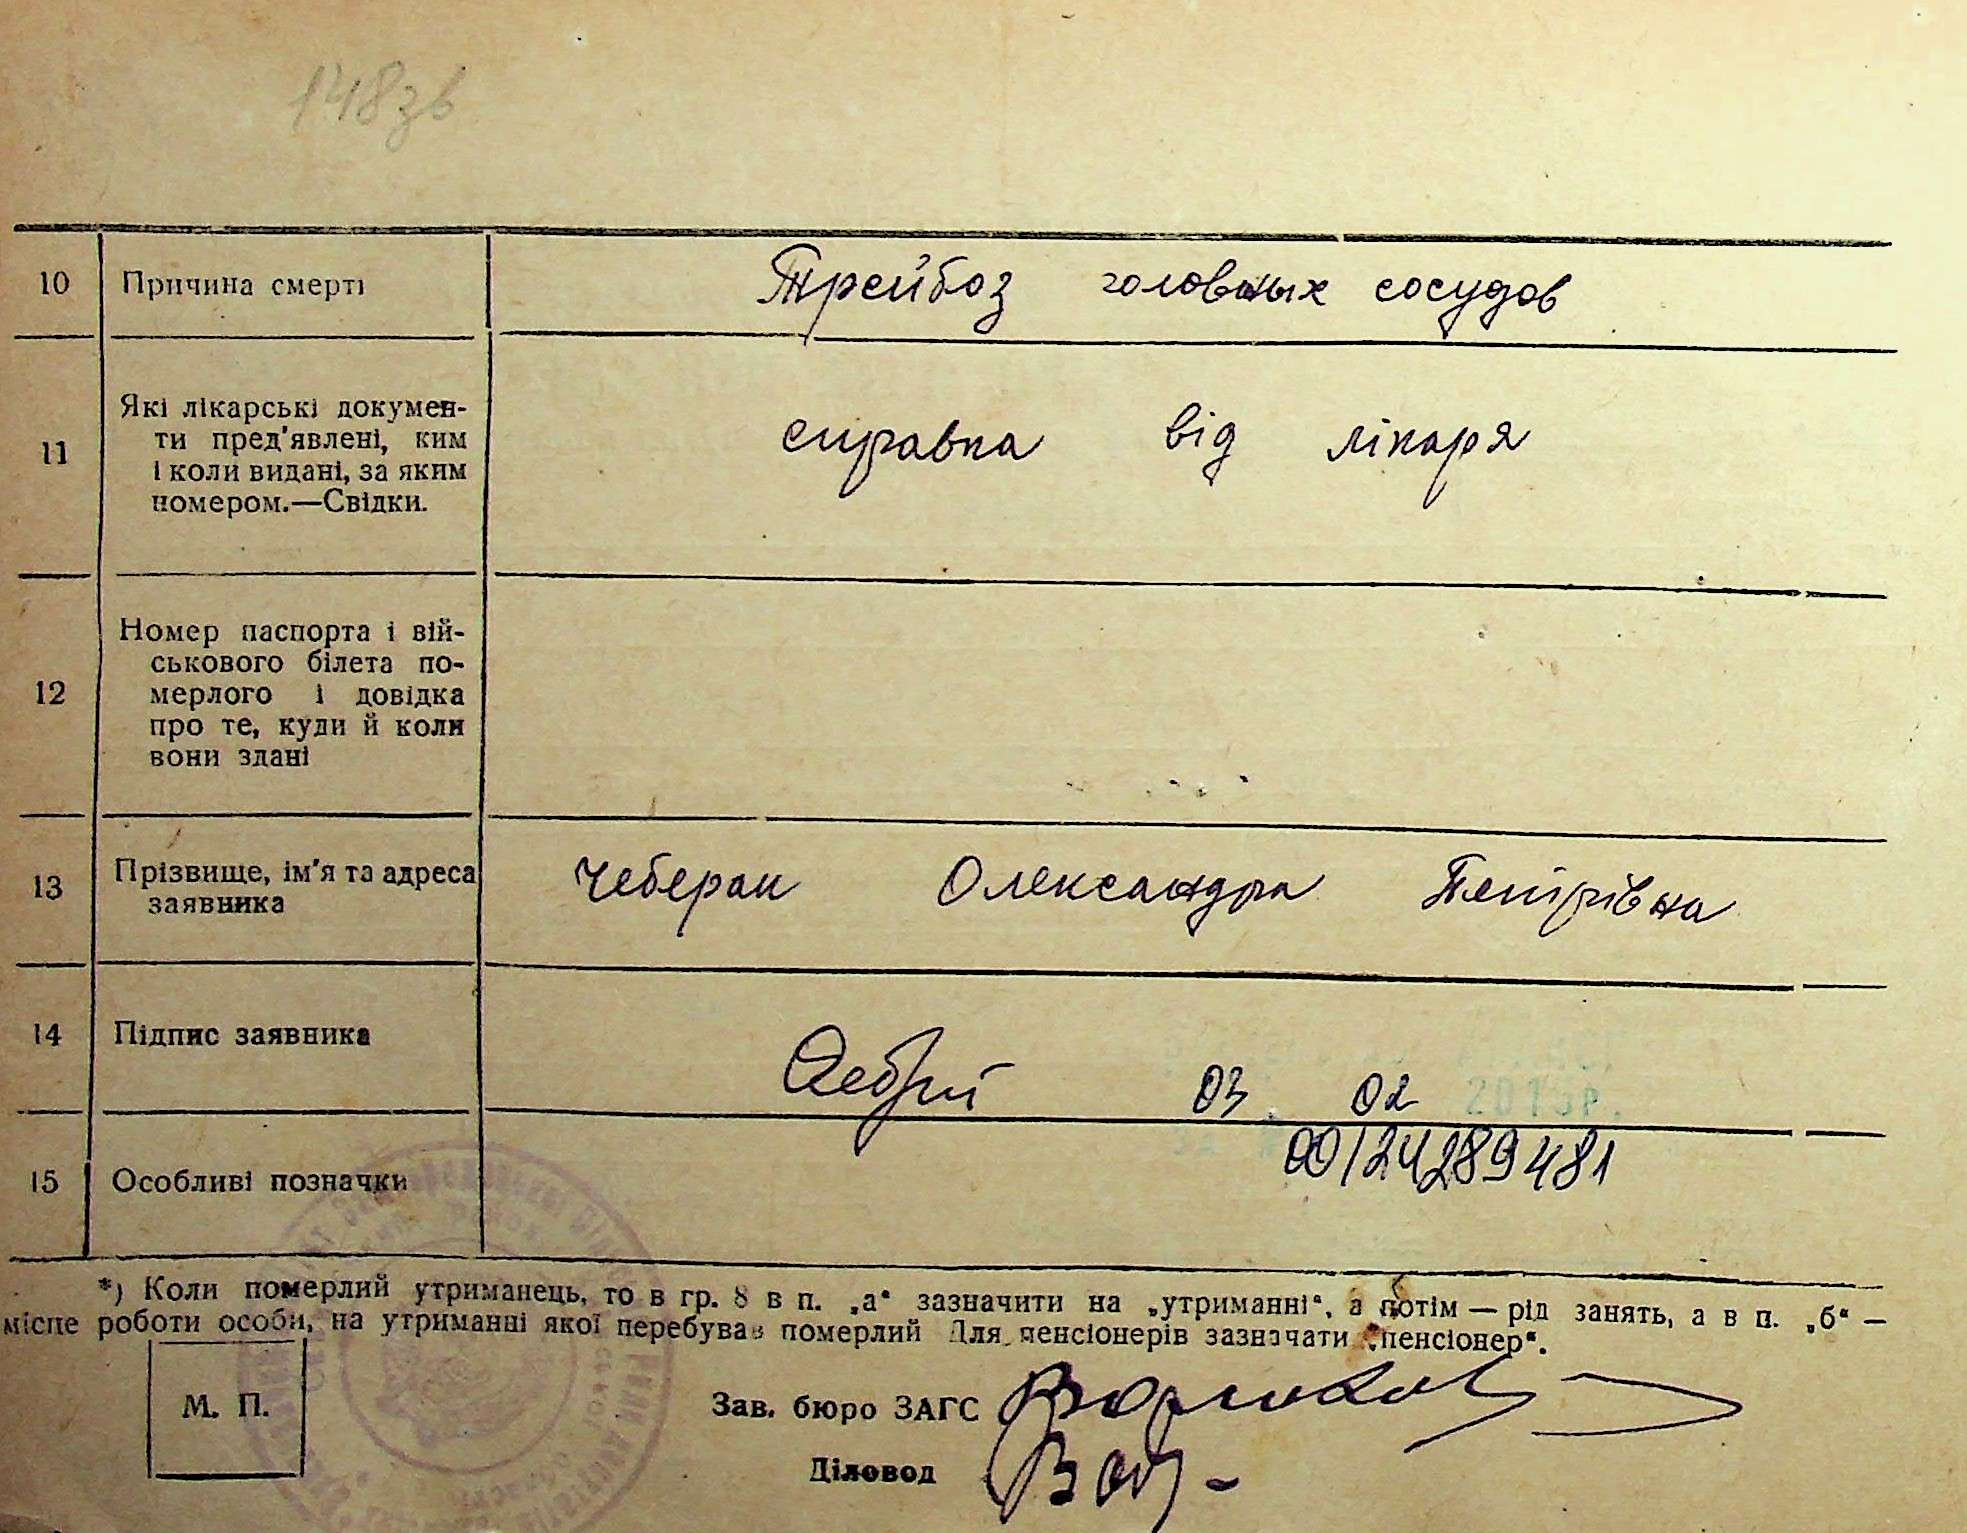 148зв
10 Причина смерті Трейбоз головных сосудов
11 Які лікарські докумен-
ти пред'явлені, ким
і коли видані, за яким
номером.—Свідки.
справка від лікаря
12 Номер паспорта і вій-
ськового білета по-
мерлого і довідка
про те, куди й коли
вони здані
13 Прізвище, ім'я та адреса
заявника
Чеберак Олександра Петрівна
14 Підпис заявника
03 02 2015р.
15 Особливі позначки 00124289481
*) Коли померлий утриманець, то в гр. 8 в п. „а“ зазначити на „утриманні“, а потім — рід занять, а в п. „б“ —
місце роботи особи, на утриманні якої перебував померлий Для пенсіонерів зазначати „пенсіонер“.
М. П.
Зав. бюро ЗАГС
Діловод